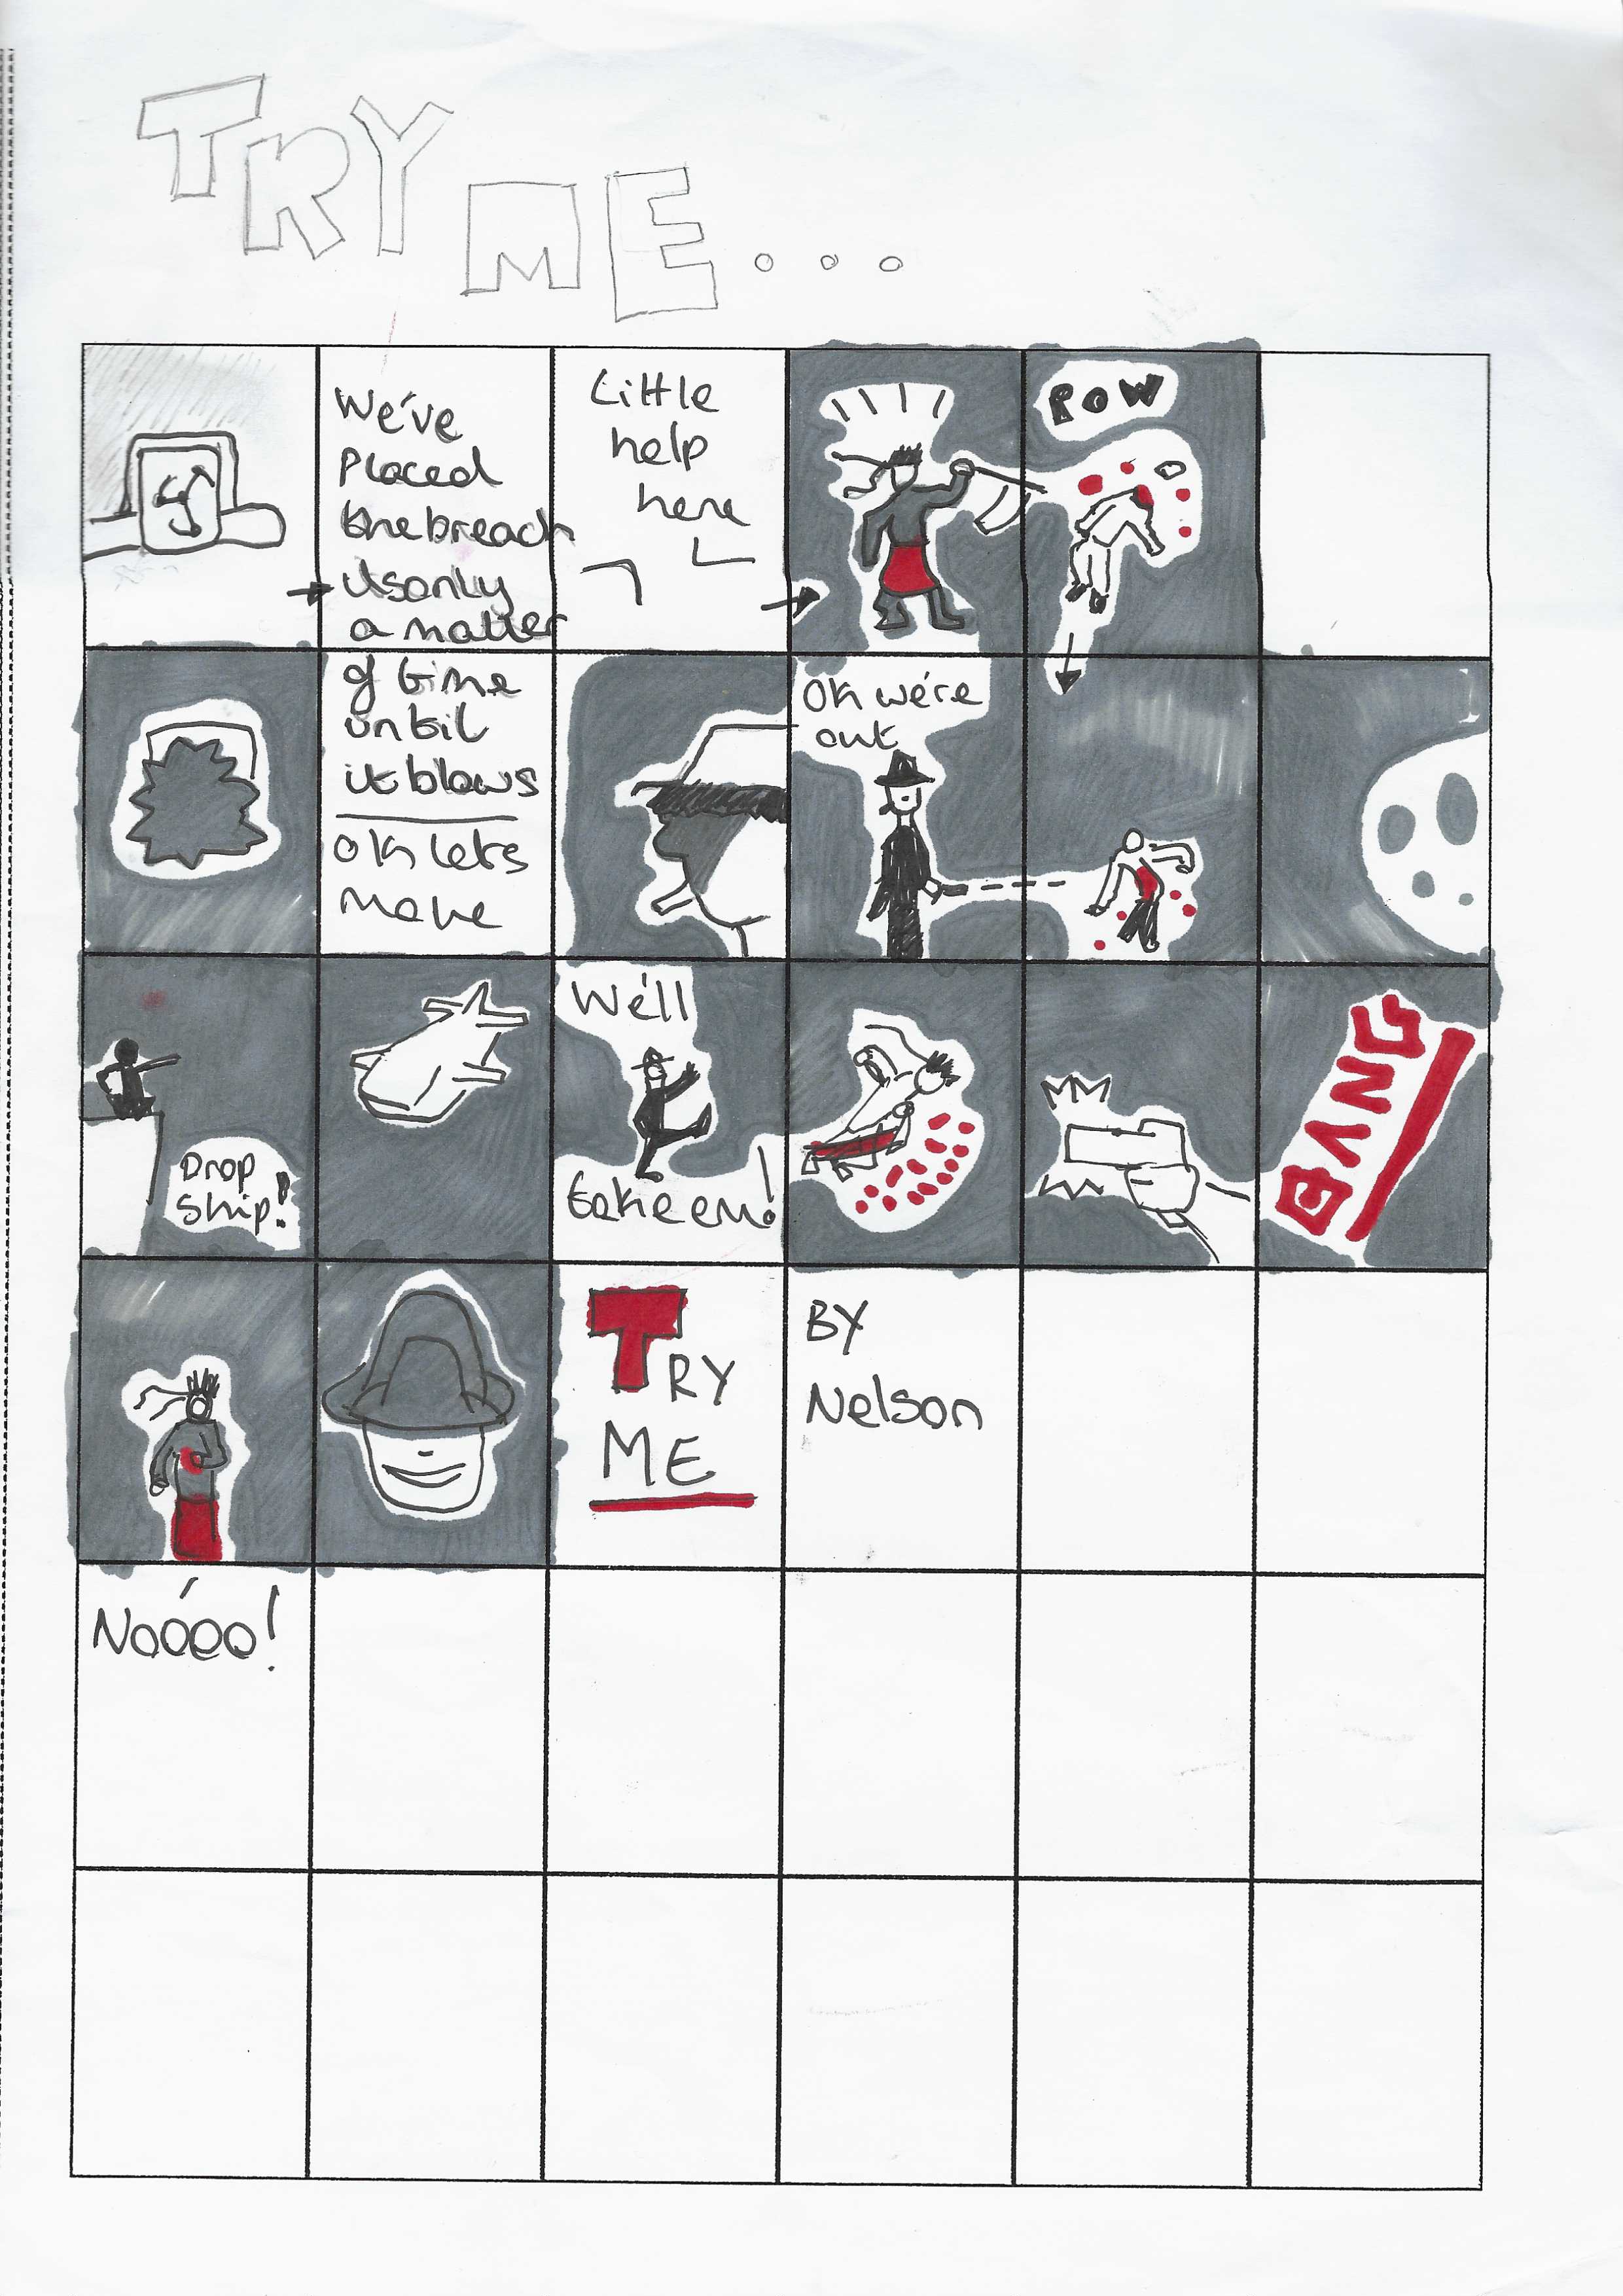 TRY ME...
We've
Placed
the breach
Itsonly
a matter
of time
until
it blows
Ok lets
move
Little
help
here
POW
Ok we're
out
Drop
Ship!
We'll
take em!
BANG
TRY
ME
BY
Nelson
Noooo!